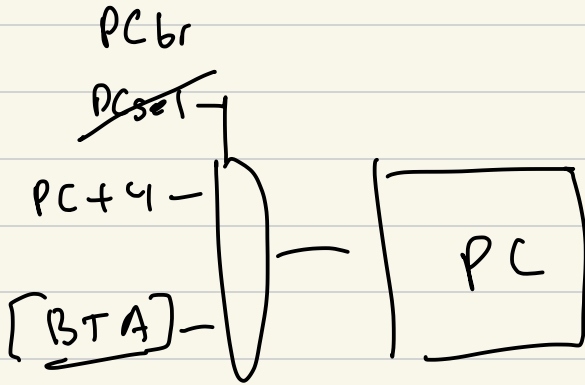 PCbr
PCsel
PC+4
[BTA]
PC